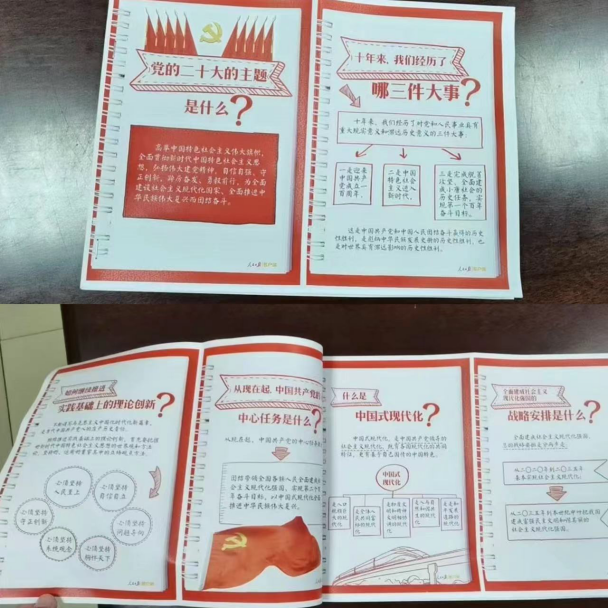 党的二十大的主题
是什么?
高举中国特色社会主义伟大旗帜,
全面贯彻新时代中国特色社会主义思
想,弘扬伟大建党精神,自信自强、守
正创新,踔厉奋发、勇毅前行,为全面
建设社会主义现代化国家、全面推进中
华民族伟大复兴而团结奋斗。
十年来,我们经历了
哪三件大事?
十年来,我们经历了对党和人民事业具有
重大现实意义和深远历史意义的三件大事:
一是迎来
中国共产
党成立一
百周年,
二是中国
特色社会
主义进入
新时代,
三是完成脱贫
攻坚、全面建
成小康社会的
历史任务,实
现第一个百年
奋斗目标。
这是中国共产党和中国人民团结奋斗赢得的历史
性胜利,是彪炳中华民族发展史册的历史性胜利,也
是对世界具有深远影响的历史性胜利。
人民日报
人民日报
如何继续推进
实践基础上的理论创新?
必须坚持
人民至上
必须坚持
自信自立
必须坚持
守正创新
必须坚持
问题导向
必须坚持
系统观念
必须坚持
胸怀天下
从现在起,中国共产党的
中心任务是什么?
从现在起,中国共产党的中心任务
团结带领全国各族人民全面建成社
会主义现代化强国、实现第二个百
年奋斗目标,以中国式现代化全面
推进中华民族伟大复兴。
什么是
中国式现代化?
中国式现代化,是中国共产党领导的
社会主义现代化,既有各国现代化的共同
特征,更有基于自己国情的中国特色。
中国式
现代化
全面建成社会主义
现代化强国的
战略安排是什么?
全面建成社会主义现代化强国,
总的战略安排是分两步走:
从二〇二〇年到二〇三五年
基本实现社会主义现代化,
从二〇三五年到本世纪中叶把我国
建成富强民主文明和谐美丽的
社会主义现代化强国。